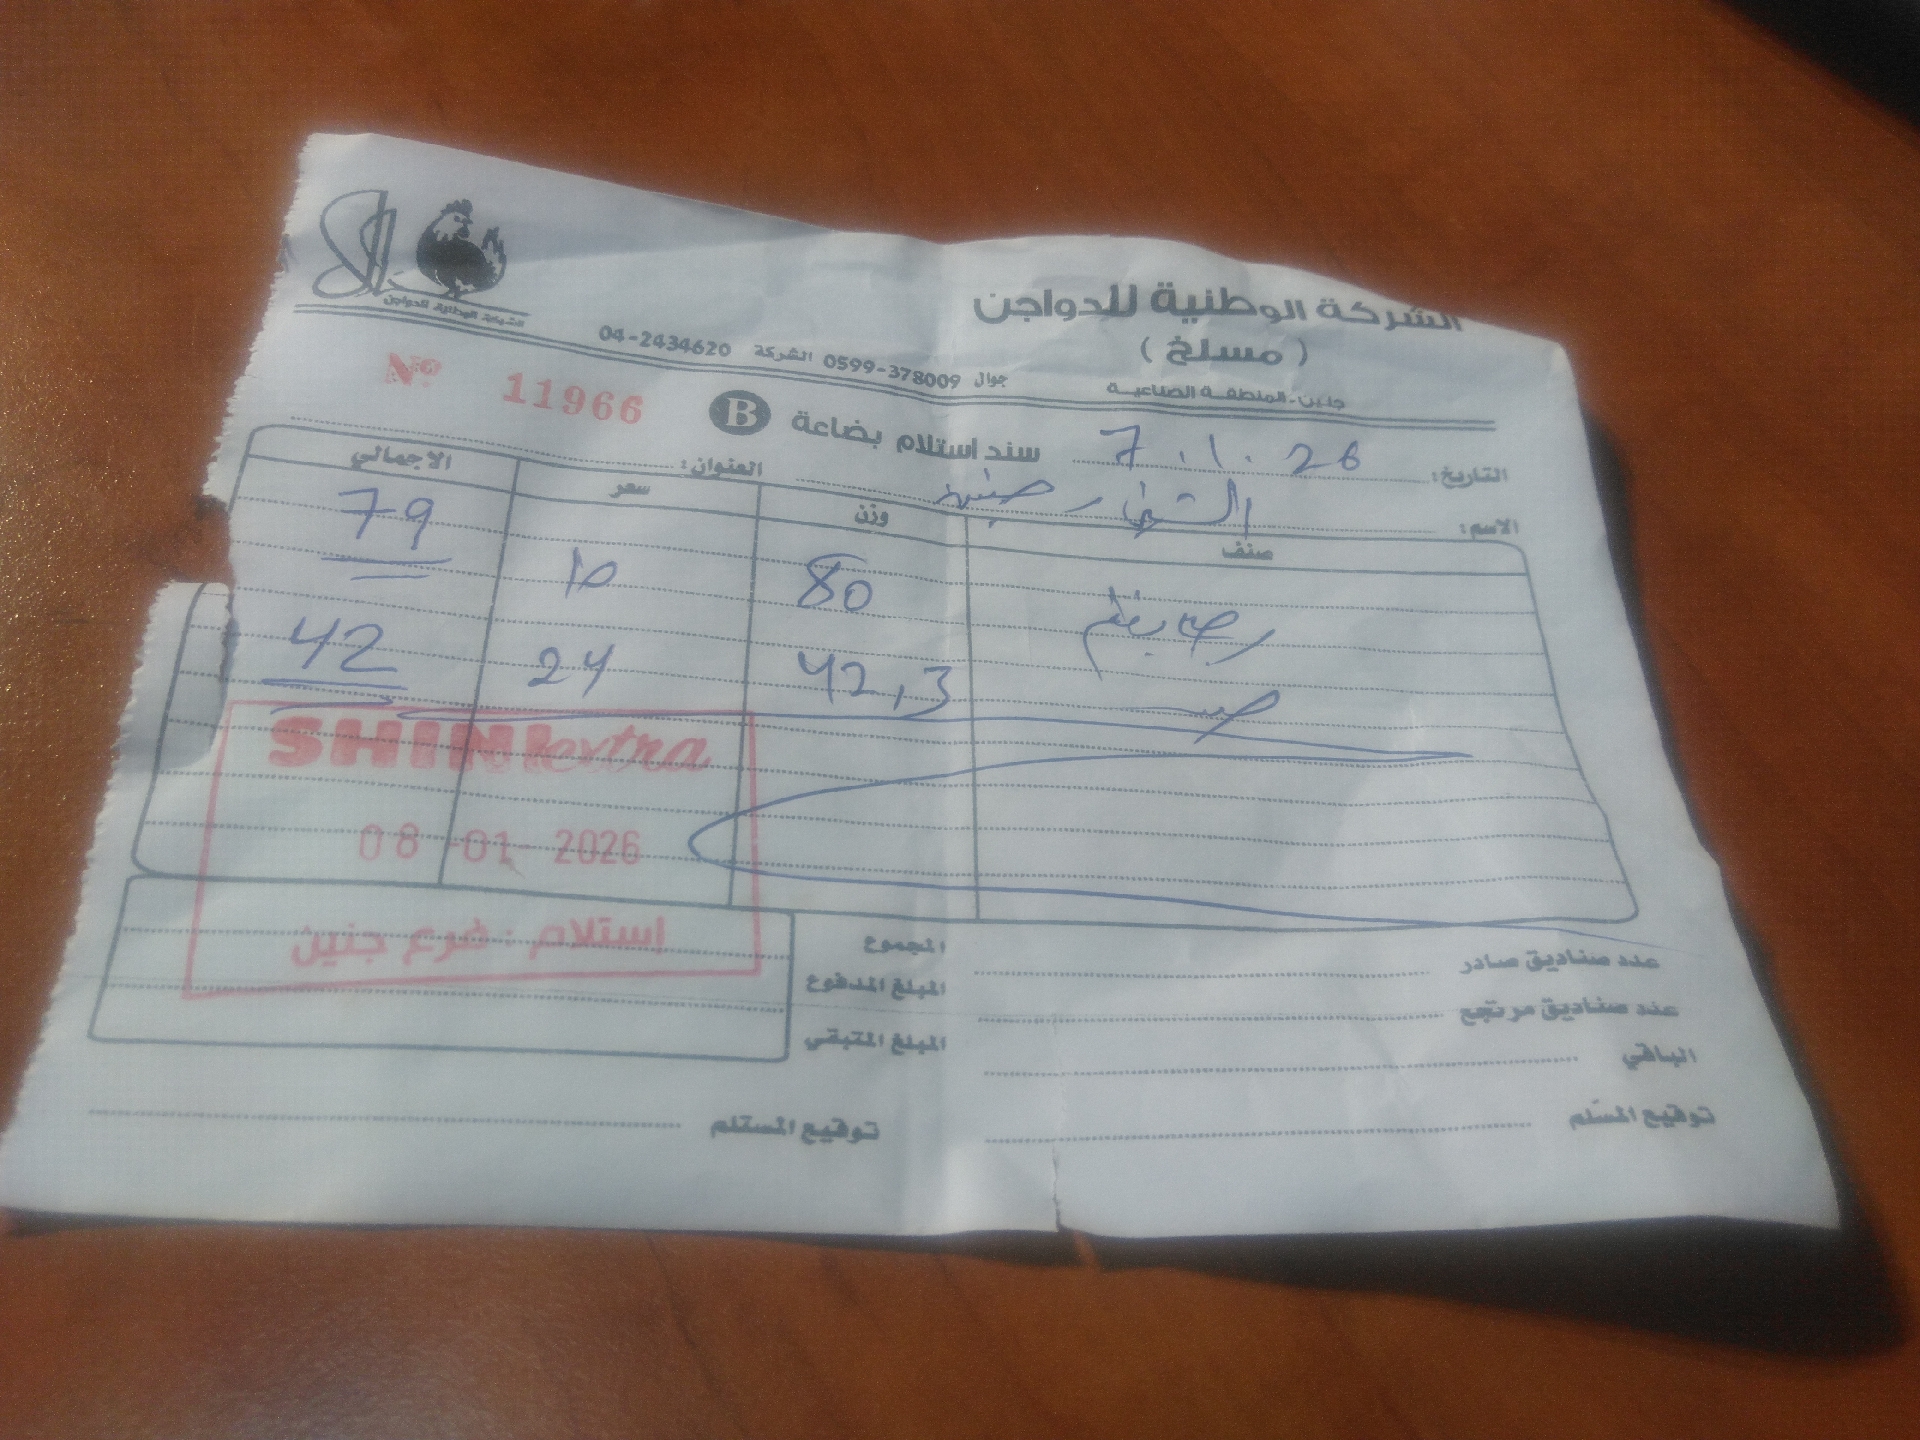 الشركة الوطنية للدواجن
( مسلخ )
جنين-المنطقة الصناعية
جوال 0599-378009 الشركة 04-2434620
الشركة الوطنية للدواجن
Nº 11966
سند استلام بضاعة B
التاريخ: 7.1.26
الاسم: جنين
العنوان:
صنف وزن سعر الاجمالي
80 10 79
42,3 24 42
SHINI extra
08-01-2026
استلام : فرع جنين
عدد صناديق صادر
عدد صناديق مرتجع
الباقي
المجموع
المبلغ المدفوع
المبلغ المتبقي
توقيع المسّلم
توقيع المستلم